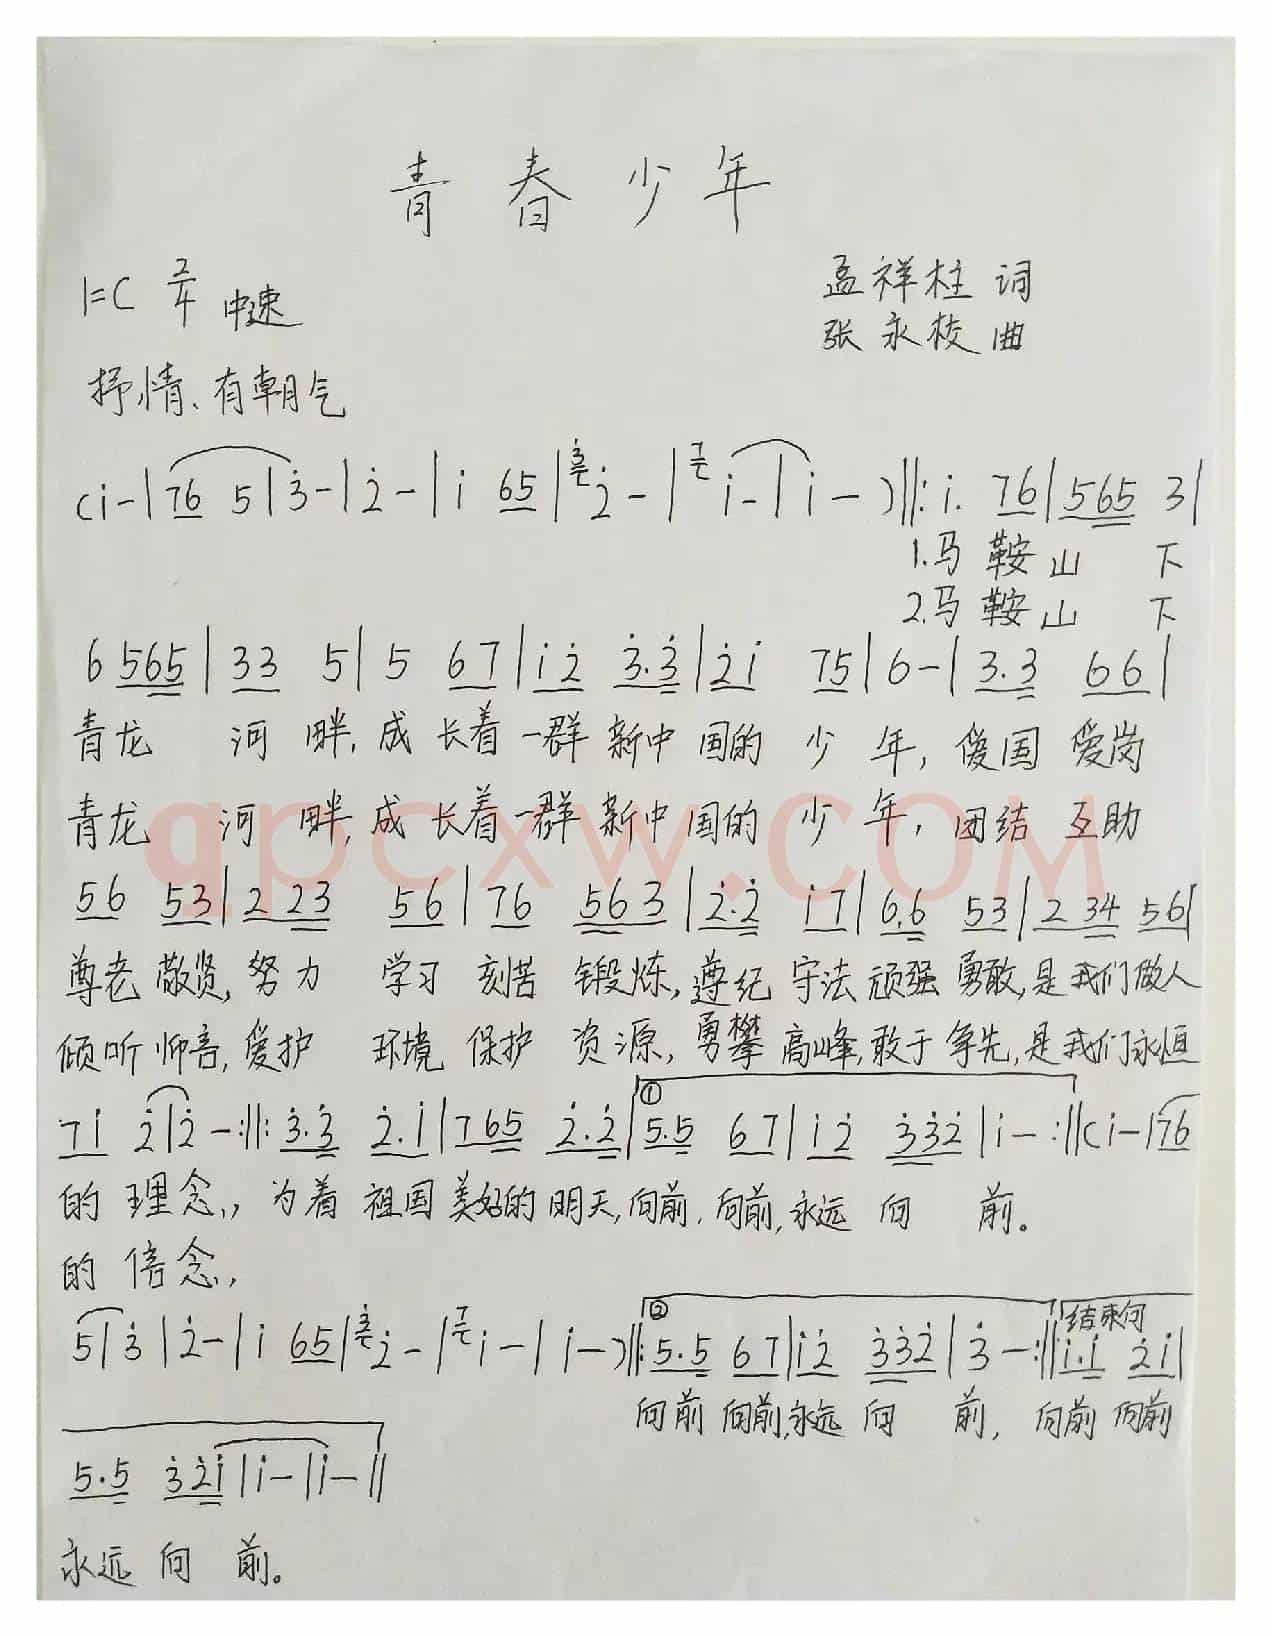 青春少年
1=C 2/4 中速
孟祥柱 词
张永校 曲
抒情、有朝气
(i̇-|76 5|3̇-|2̇-|i̇ 65|3̇2̇-|7i̇-|i̇-)‖:i̇. 76|565 3|
1.马鞍山 下
2.马鞍山 下
6 565|33 5|5 67|i̇2̇ 3̇.3̇|2̇i̇ 75|6-|3.3 66|
青龙 河畔,成长着一群新中国的少年,爱国爱岗
青龙 河畔,成长着一群新中国的少年,团结互助
56 53|2 23 56|76 563|2̇.2̇ i̇7|6.6 53|2 34 56|
尊老敬贤,努力 学习刻苦锻炼,遵纪守法顽强勇敢,是我们做人
倾听师音,爱护 环境保护资源,勇攀高峰,敢于争先,是我们永恒
7i̇ 2̇|2̇-:‖:3̇.3̇ 2̇.i̇|765 2̇.2̇|①5.5 67|i̇2̇ 3̇3̇2̇|i̇-:‖(i̇-|76
的理念,为着祖国美好的明天,向前,向前,永远向 前。
的信念,
5|3̇|2̇-|i̇ 65|3̇2̇-|7i̇-|i̇-)‖:②5.5 67|i̇2̇ 3̇3̇2̇|3̇-:‖结束句 i̇.i̇ 2̇i̇|
向前向前,永远向 前,向前向前
5.5 3̇2̇i̇|i̇-|i̇-‖
永远向 前。
qpcxw.COM